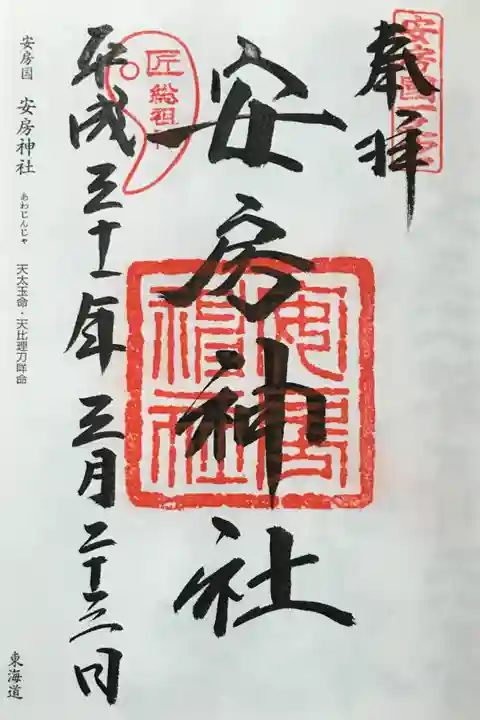 奉拝
安房國一之宮
安房神社
安房神社
匠総祖神
平成三十一年三月二十三日
安房国 安房神社 あわじんじゃ 天太玉命・天比理刀咩命
東海道